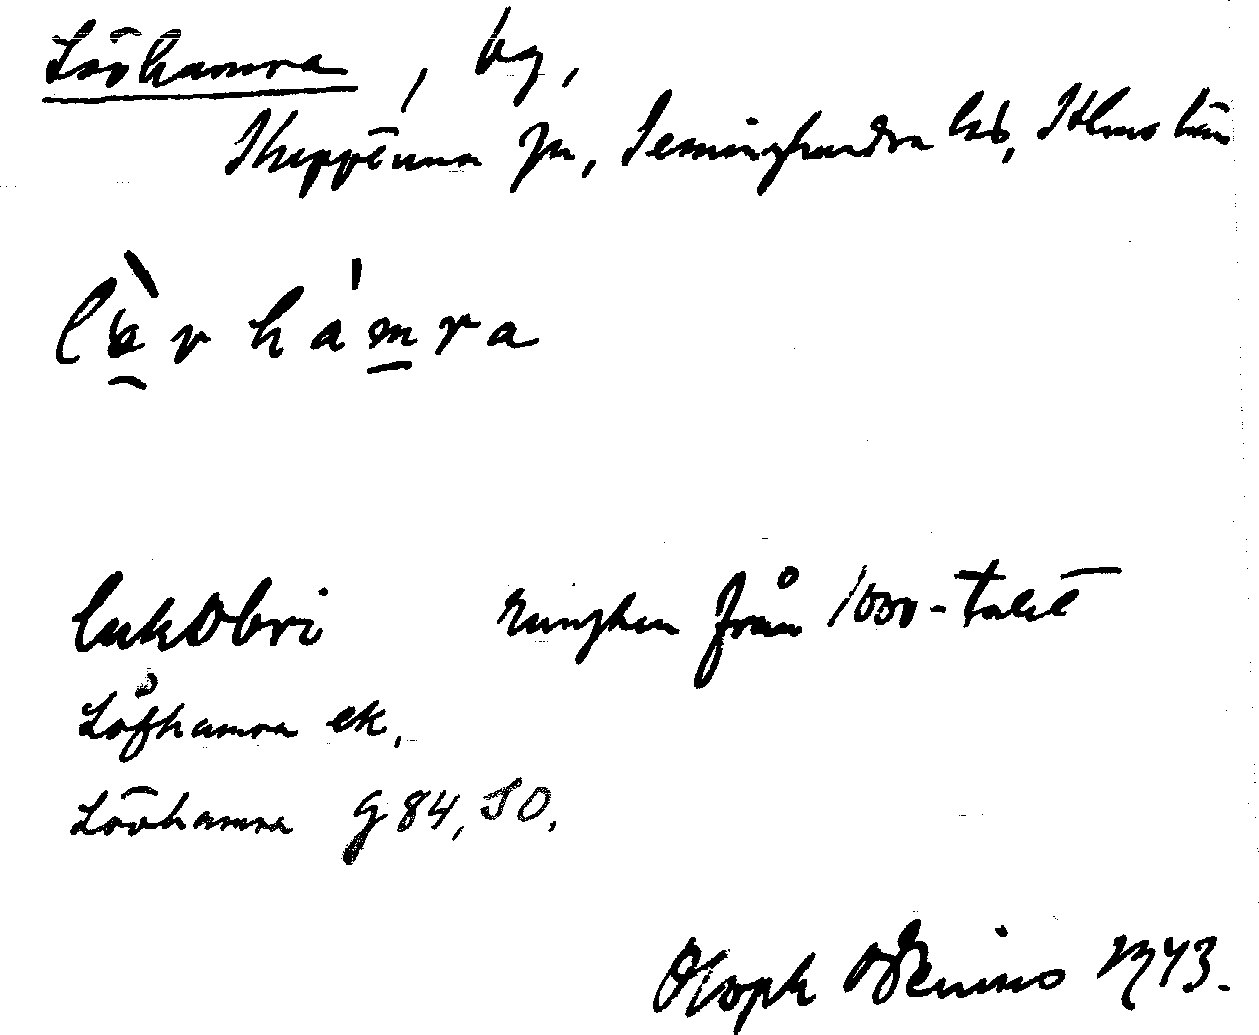 Lövhamra, by,
Skepptuna sn, Seminghundra hd, Sthms län
lövhamra
runsten från 1000-talet
Löfhamra ek.
Lövhamra G 84, JO.
Oloph Odenius 1943.